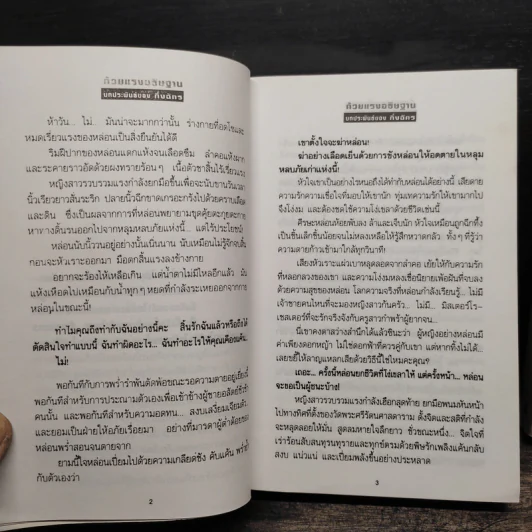 ด้วยแรงอธิษฐาน
บทประพันธ์ของ กิ่งฉัตร
ห้าวัน... ไม่... มันน่าจะมากกว่านั้น ร่างกายที่อดโซและ
หมดเรี่ยวแรงของหล่อนเป็นสิ่งยืนยันได้ดี
ริมฝีปากของหล่อนแตกแห้งจนเลือดซึม ลำคอแห้งผาก
และระคายราวอัดด้วยผงทรายร้อนๆ เนื้อตัวชาสิ้นไร้เรี่ยวแรง
หญิงสาวรวบรวมแรงกำลังยกมือขึ้นเพื่อจะนับขานวันเวลา
นิ้วเรียวยาวสั่นระริก ปลายนิ้วฉีกขาดเกรอะกรังไปด้วยคราบเลือด
และดิน ซึ่งเป็นผลจากการที่หล่อนพยายามขุดคุ้ยตะกุยตะกาย
หาทางดิ้นรนออกไปจากหลุมหลบภัยแห่งนี้... แต่ไร้ประโยชน์
หล่อนนับนิ้ววนอยู่อย่างนั้นเนิ่นนาน นับเหมือนไม่รู้จักจบสิ้น
ก่อนจะหัวเราะออกมา มือตกสิ้นแรงลงข้างกาย
อยากจะร้องไห้เหลือเกิน แต่น้ำตาไม่มีไหลอีกแล้ว มัน
แห้งเหือดไปเหมือนกับน้ำทุกๆ หยดที่กำลังระเหยออกจากกาย
หล่อนในขณะนี้!
ทำไมคุณถึงทำกับฉันอย่างนี้คะ สิ้นรักฉันแล้วหรือถึงได้
ตัดสินใจทำแบบนี้ ฉันทำผิดอะไร... ฉันทำอะไรให้คุณเคืองแค้น...
ไม่!
พอกันทีกับการพร่ำรำพันตัดพ้อขณะรอความตายอยู่เยี่ยงนี้
พอกันทีสำหรับการประณามตัวเองเพื่อเข้าข้างผู้ชายอสัตย์ชั่วช้า
คนนั้น และพอกันทีสำหรับความอดทน... สงบเสงี่ยมเจียมตัว...
และยอมเป็นฝ่ายให้อภัยเรื่อยมา อย่างที่มารดาผู้ต่ำต้อยของ
หล่อนพร่ำสอนจนตายจาก
ยามนี้ใจหล่อนเปี่ยมไปด้วยความเกลียดชัง คับแค้น พร่ำย้ำ
กับตัวเองว่า
2
ด้วยแรงอธิษฐาน
บทประพันธ์ของ กิ่งฉัตร
เขาตั้งใจจะฆ่าหล่อน!
ฆ่าอย่างเลือดเย็นด้วยการขังหล่อนให้อดตายในหลุม
หลบภัยเก่าแห่งนี้!
หัวใจเขาเป็นอย่างไรหนอถึงได้ทำกับหล่อนได้อย่างนี้ เสียดาย
ความรักความเชื่อใจที่มอบให้เขานัก ทุ่มเทความรักให้เขามากไป
จึงโง่งม และต้องชดใช้ความโง่เขลาด้วยชีวิตเช่นนี้
ศีรษะหล่อนห้อยพับลง ล้าและเจ็บนัก หัวใจเหมือนถูกฉีกทึ้ง
เป็นชิ้นเล็กชิ้นน้อยจนไม่หลงเหลือให้รู้สึกหวาดกลัว ทั้งๆ ที่รู้ว่า
ความตายก้าวเข้ามาใกล้ทุกวินาที!
เสียงหัวเราะแผ่วเบาหลุดลอดจากลำคอ เย้ยให้กับความรัก
ที่หลอกลวงของเขา และความโง่งมหลงเชื่อนิยายเพ้อฝันที่จบลง
ด้วยความสุขของหล่อน โลกความจริงที่หล่อนกำลังเรียนรู้... ไม่มี
เจ้าชายคนไหนที่จะมองหญิงสาวก้นครัว... ไม่มี... มิสเตอร์โร-
เชสเตอร์ที่จะรักจริงจังกับครูสาวกำพร้าผู้ยากจน...
นี่เขาคงตาสว่างสำนึกได้แล้วซินะว่า ผู้หญิงอย่างหล่อนมี
ค่าเพียงดอกหญ้า ไม่ใช่ดอกฟ้าที่ควรคู่กับเขา แต่หากทิ้งไม่ได้...
เลยขยี้ให้ลาญแหลกเสียด้วยวิธีนี้ใช่ไหมคะคุณ?
เถอะ... ครั้งนี้หล่อนยกชีวิตที่โง่เขลาให้ แต่ครั้งหน้า... หล่อน
จะขอเป็นผู้ชนะบ้าง!
หญิงสาวรวบรวมแรงกำลังเฮือกสุดท้าย ยกมือพนมหันหน้า
ไปทางทิศที่ตั้งของวัดพระศรีรัตนศาสดาราม ตั้งจิตและสติที่กำลัง
จะหลุดลอยให้มั่น สูดลมหายใจลึกยาว ชั่วขณะหนึ่ง... จิตใจที่
เร่าร้อนสับสนทุรนทุรายและทุกข์ตรมด้วยพิษรักเพลิงแค้นกลับ
สงบ แน่วแน่ และเปี่ยมพลังขึ้นอย่างประหลาด
3